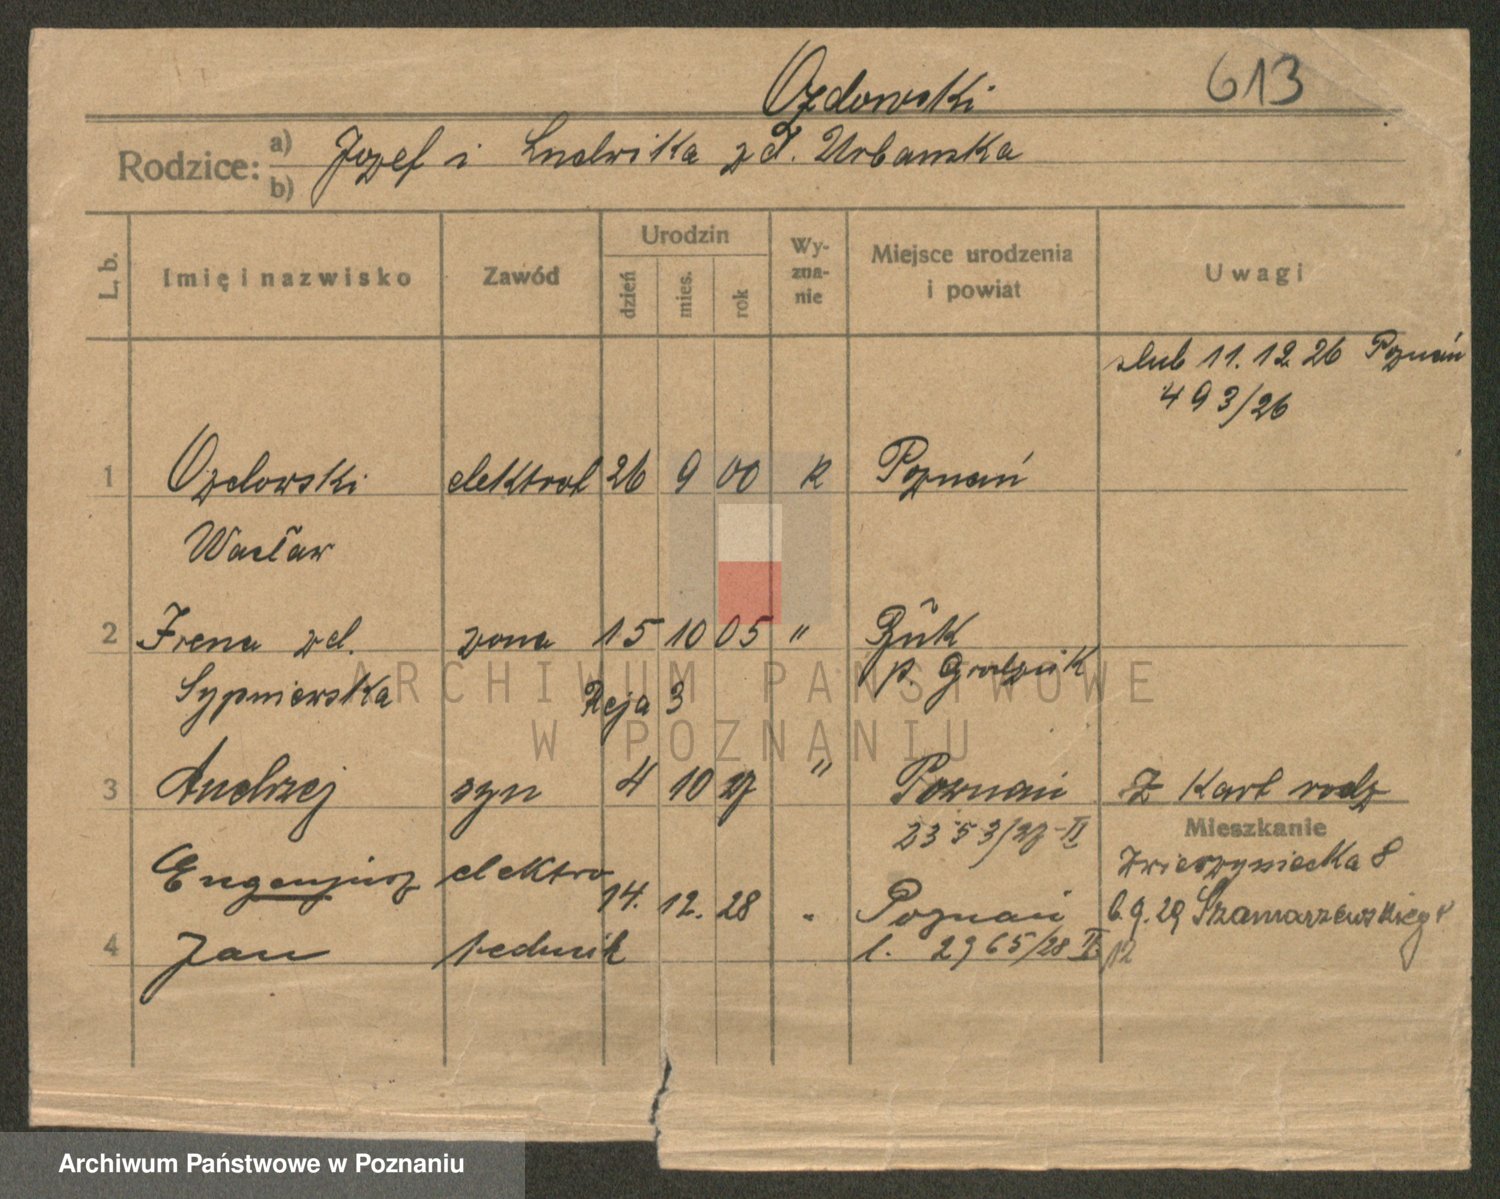 Ozdowski 613
Rodzice: a) b) Józef i Ludwika z d. Urbanska
L. b. Imię i nazwisko Zawód Urodzin dzień mies. rok Wy-zna-nie Miejsce urodzenia i powiat Uwagi
slub 11. 12 26 Poznań
493/26
1 Ozdowski elektrot 26 9 00 R Poznań
Wacław
2 Irena zd. zona 15 10 05 " Buk
p. Grodzisk
Sypniewska Reja 3
3 Andrzej syn 4 10 27 " Poznań z Kart rodz
2353/27-II Mieszkanie
Zwierzyniecka 8
Eugenjusz elektro 14. 12. 28 " Poznań 6.9.29 Szamarzewskiego
4 Jan technik l. 2965/28 II 12
ARCHIWUM PAŃSTWOWE
W POZNANIU
Archiwum Państwowe w Poznaniu